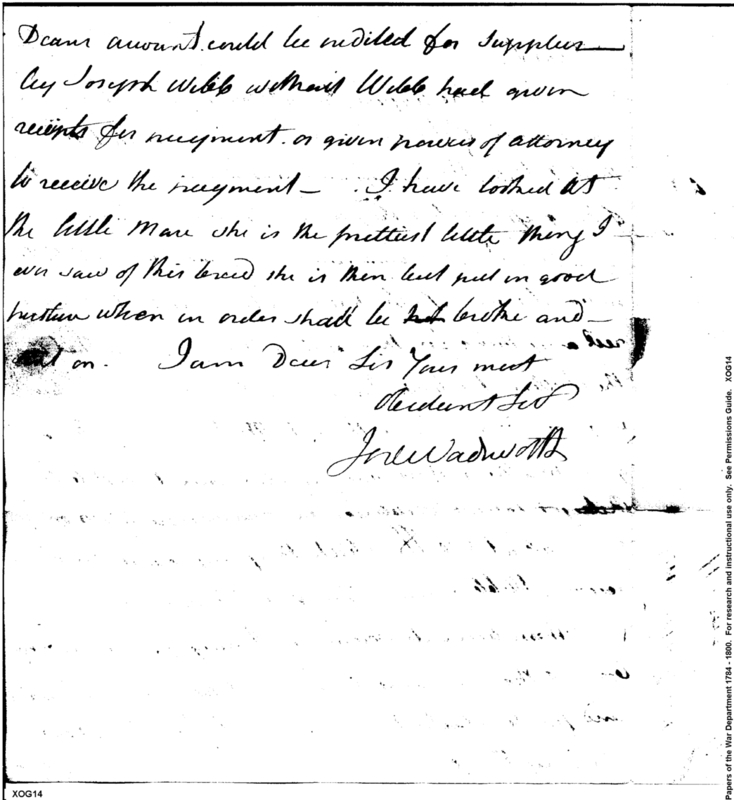 Deans account could be credited for supplies
by Joseph Webb without Webb had given
receipts for payment. or given power of attorney
to receive the payment – . I have looked at
the little Mare she is the prettiest little thing I
ever saw of this breed she is thin but put in good
pasture when in order shall be broke and –
on. I am Dear Sir Your most
Obedient Ser
Jere Wadsworth
XOG14
Papers of the War Department 1784 - 1800. For research and instructional use only. See Permissions Guide. XOG14